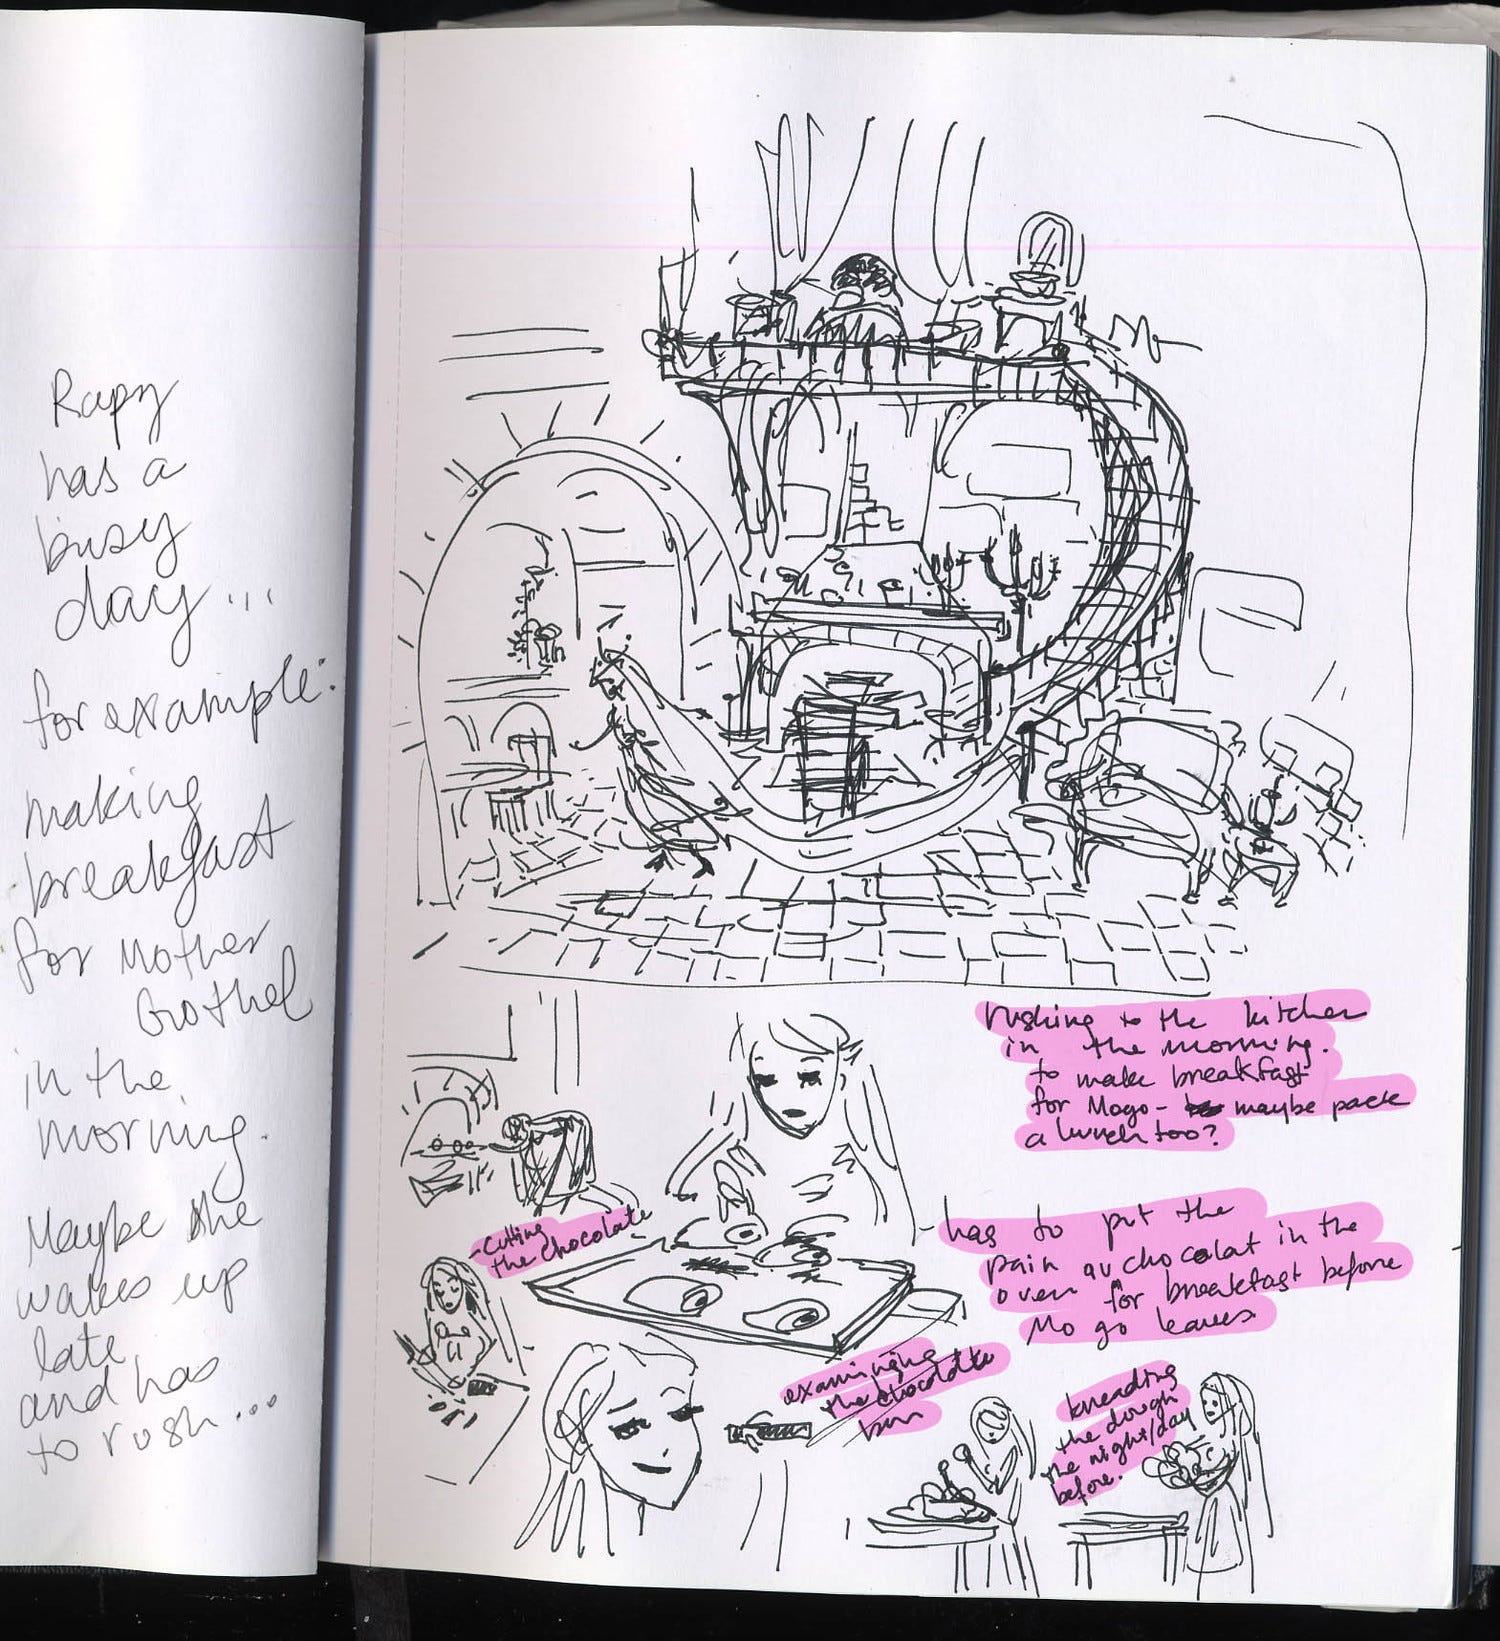 Rapy
has a
busy
day...
for example:
making
breakfast
for Mother
Gothel
in the
morning.
Maybe she
wakes up
late
and has
to rush...
rushing to the kitchen
in the morning.
to make breakfast
for Mogo - maybe pack
a lunch too?
- cutting
the chocolate
- has to put the
pain au chocolat in the
oven for breakfast before
Mo go leaves
examining
the chocolate
bun
kneading
the dough
the night/day
before.